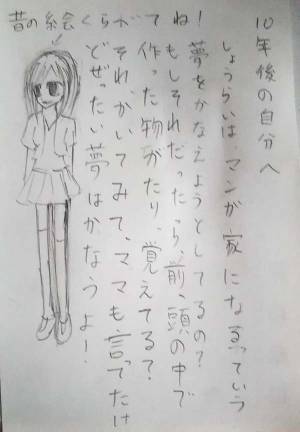 10年後の自分へ
しょうらいは、マンガ家になるっていう
夢をかなえようとしてるの?
もしそれだったら、前、頭の中で
作った物がたり、覚えてる?
それ、かいてみて、ママも言ってたけ
どぜったい夢はかなうよ!
昔の絵くらべてね!